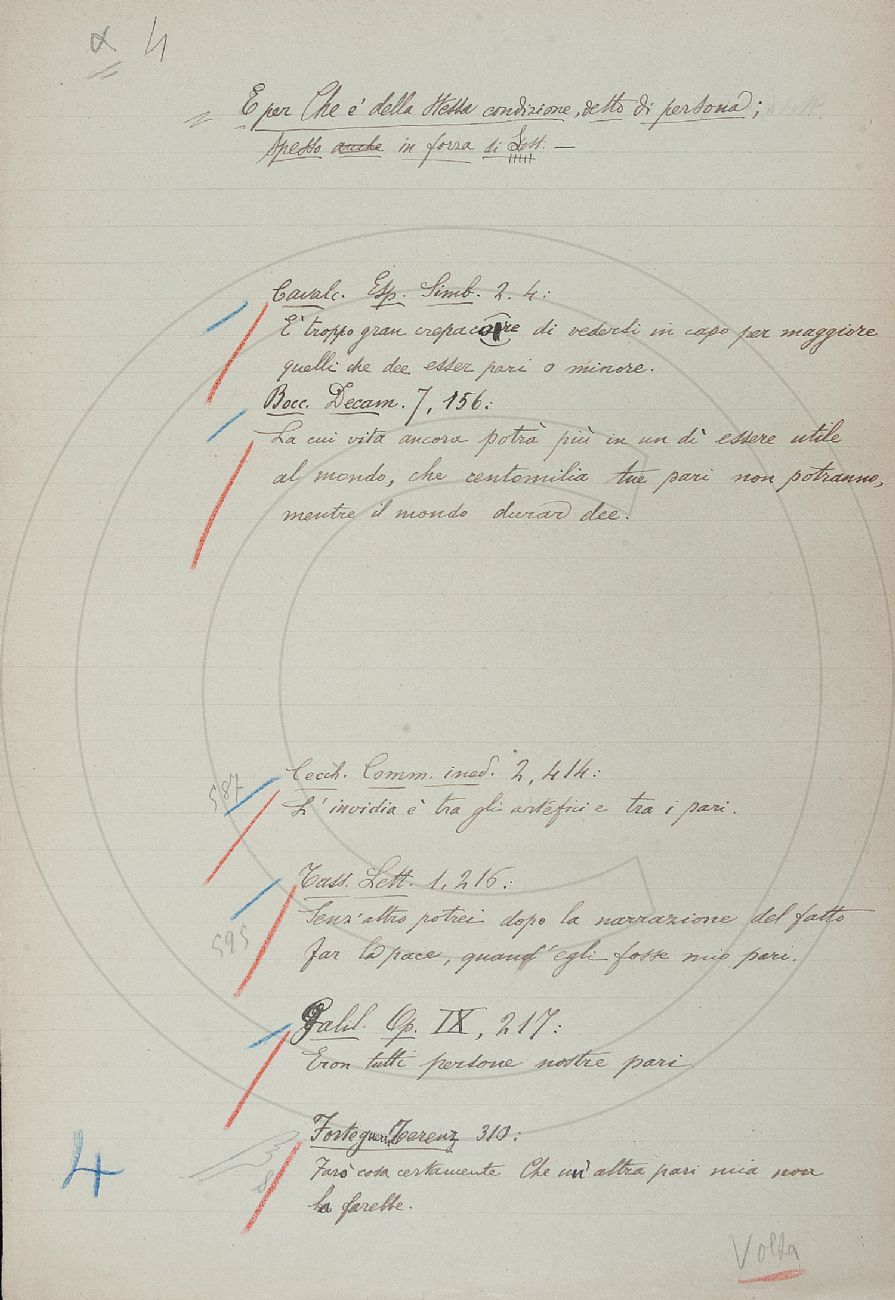 α 4
E per Che è della stessa condizione, detto di persona;
spesso anche in forza di Sost. —
Cavalc. Esp. Simb. 2. 4:
È troppo gran crepacuore di vedersi in capo per maggiore
quelli che dee esser pari o minore.
Bocc. Decam. 7, 156:
La cui vita ancora potrà più in un dì essere utile
al mondo, che centomilia tue pari non potranno,
mentre il mondo durar dee.
Cecch. Comm. ined. 2, 414:
587
L'invidia è tra gli artefici e tra i pari.
Tass. Lett. 1, 216:
Senz'altro potrei dopo la narrazione del fatto
595
far la pace, quand'egli fosse mio pari.
Galil. Op. IX, 217:
Eron tutti persone nostre pari.
Forteguerri Terenz 310:
4
Farò cosa certamente Che un'altra pari mia non
la farebbe.
Volta